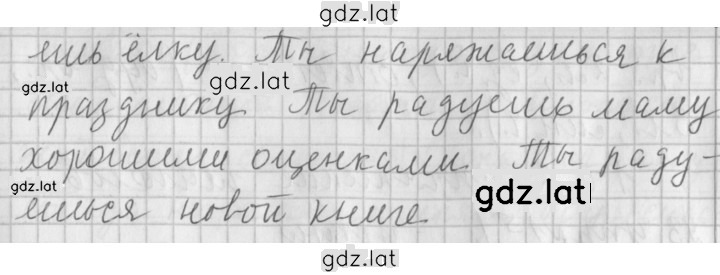 gdz.lat
ешь ёлку. Ты наряжаешься к
gdz.lat
gdz.lat
празднику Ты радуешь маму
gdz.lat
хорошими оценками. Ты раду-
gdz.lat
gdz.lat
ешься новой книге
gdz.lat